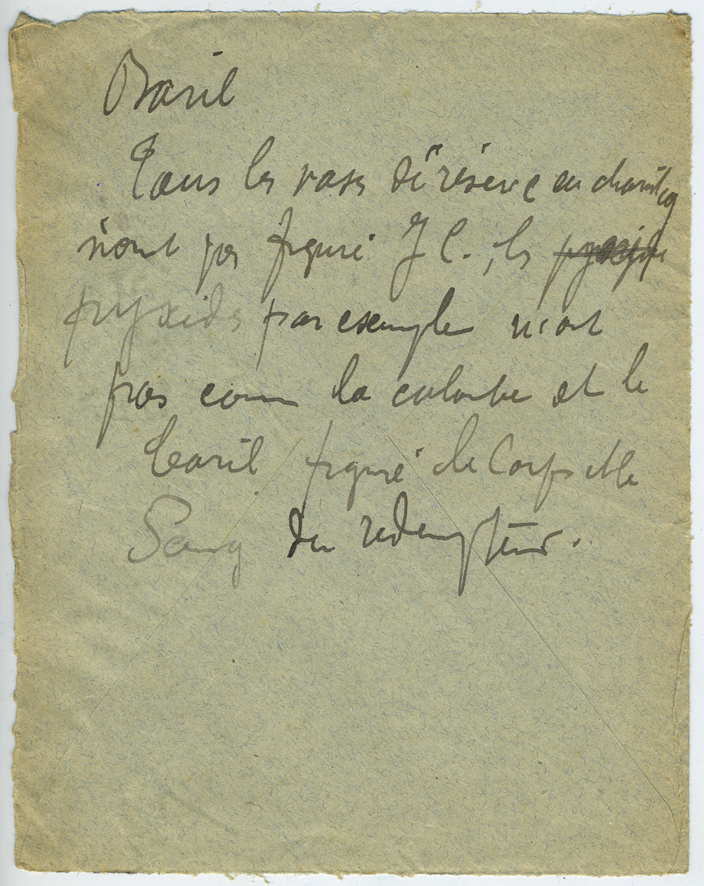 Baril
Tous les vases de réserve
n'ont pas figuré J C., les
pyxides par exemple n'ont
pas comme la colombe et le
baril figuré le Corps et le
Sang du redempteur.